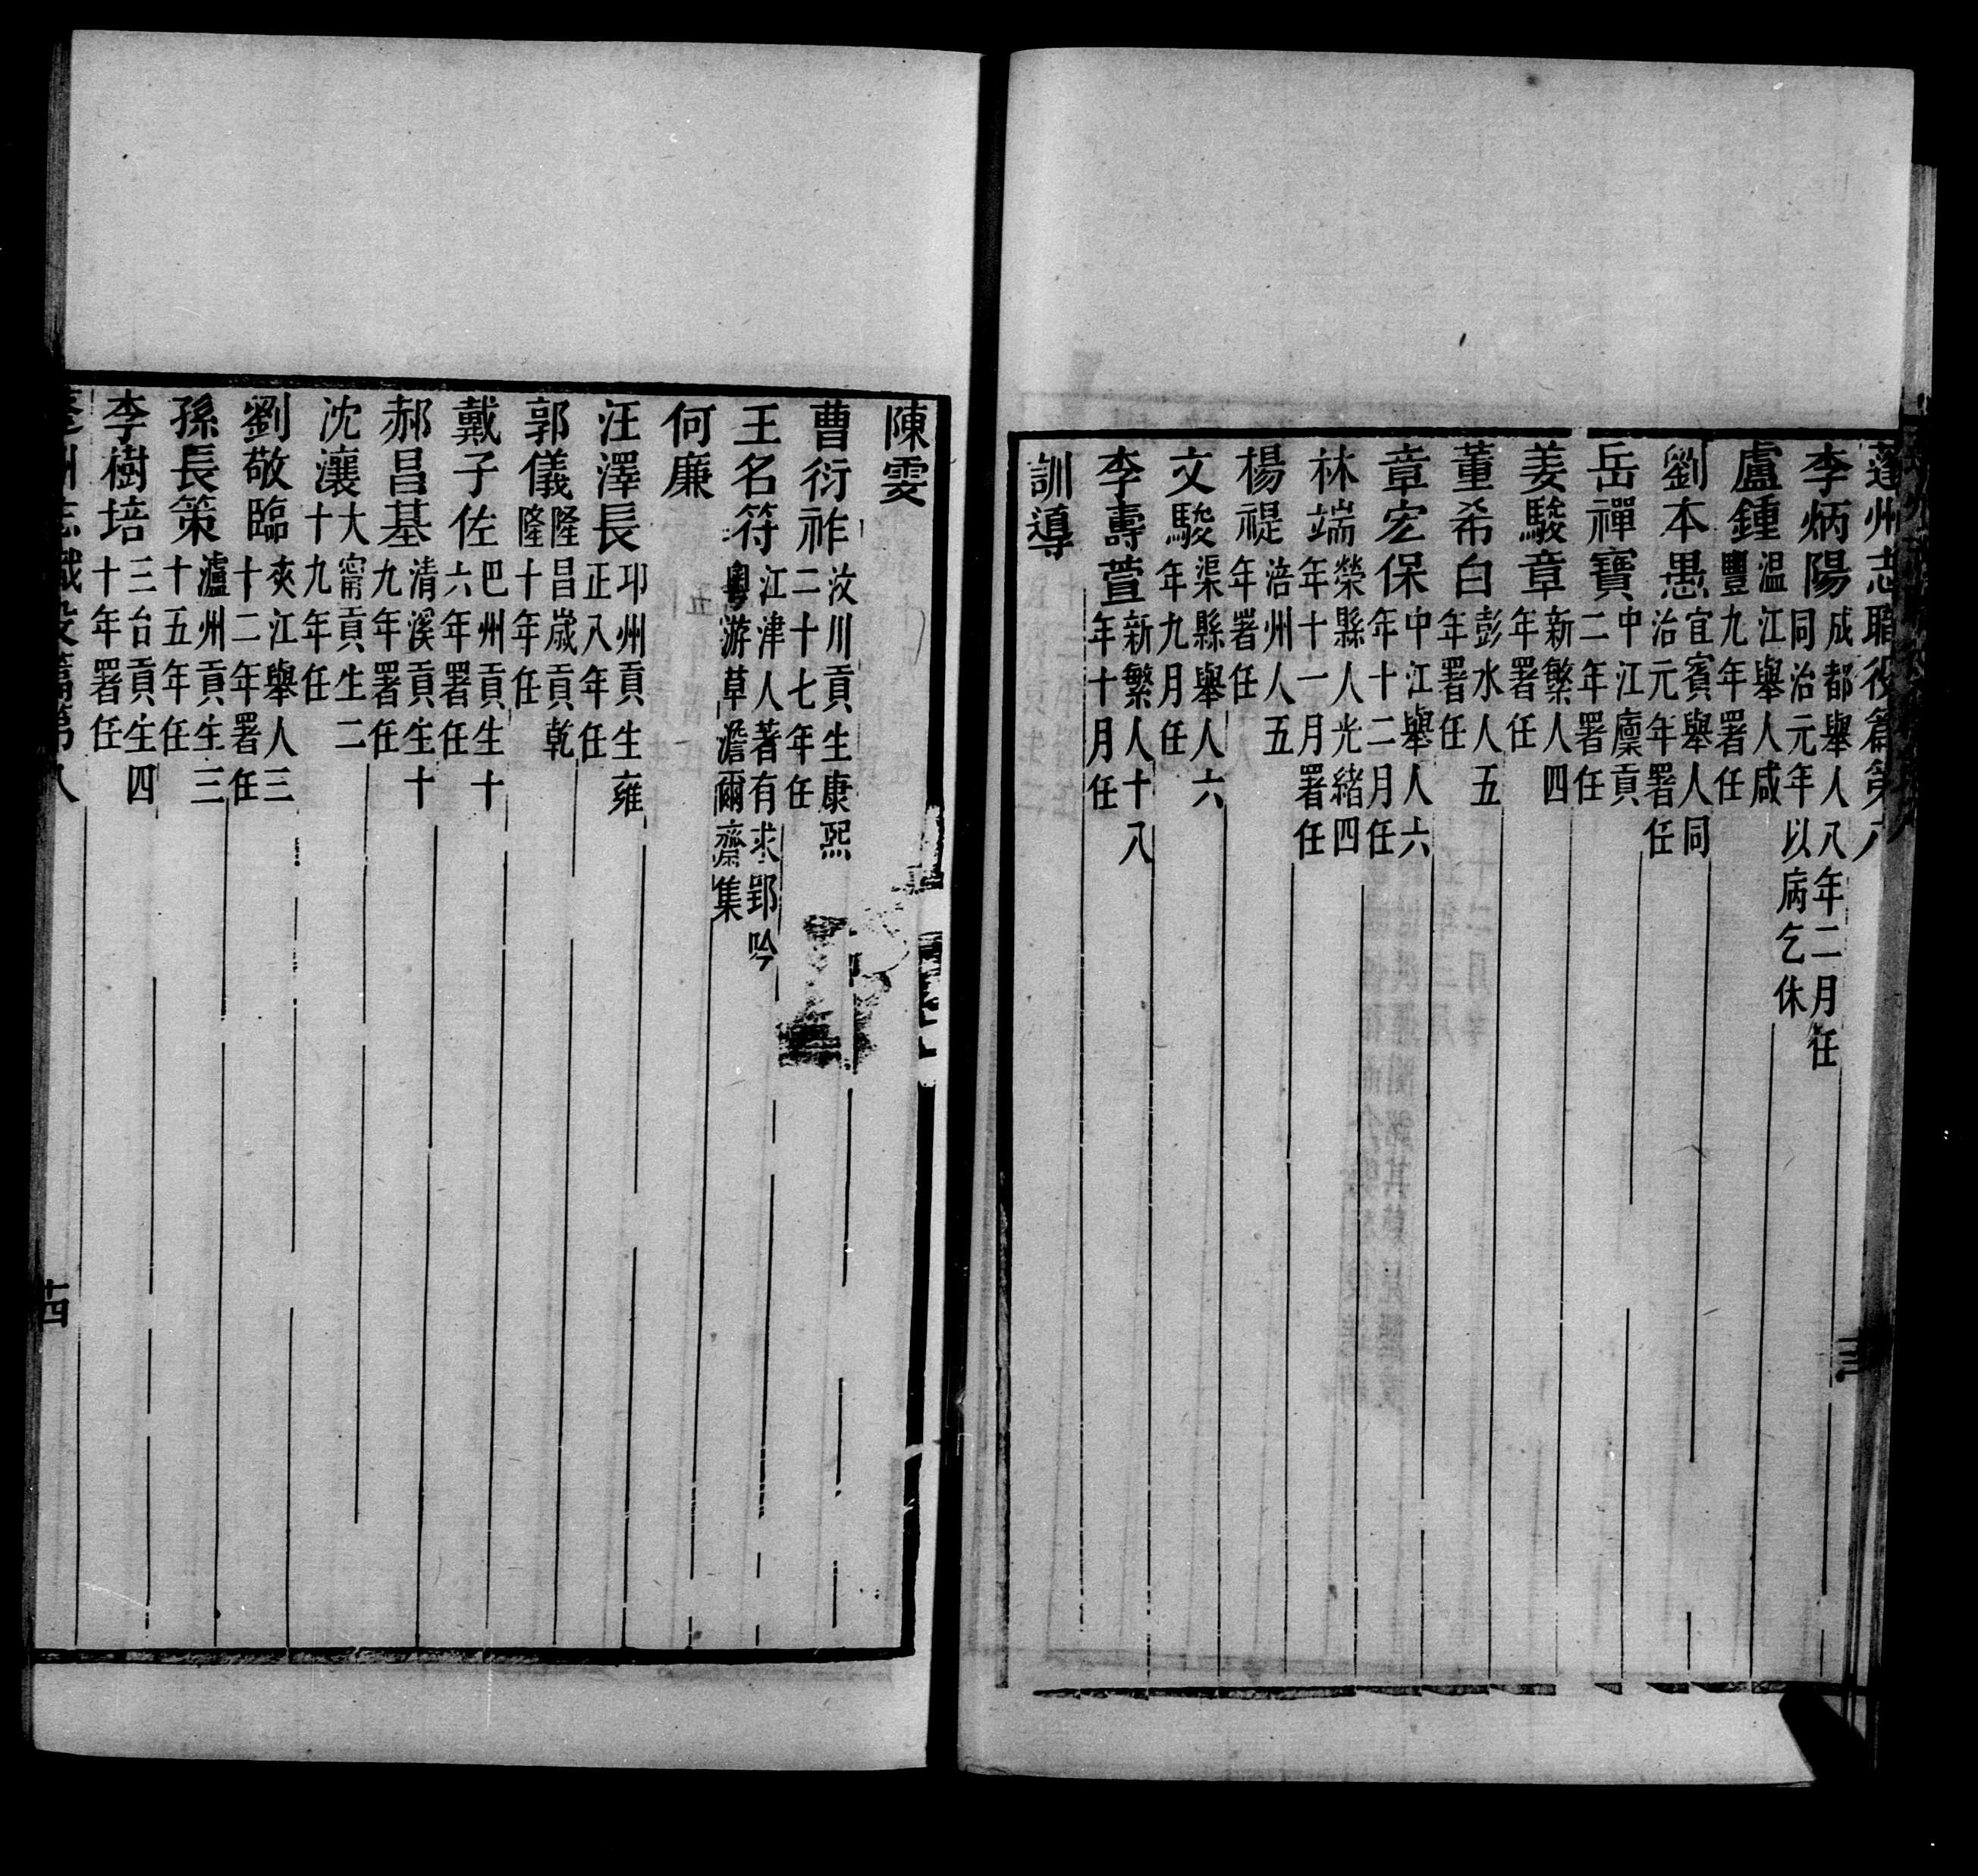 蓬州志職役篇第八
李炳陽成都舉人八年二月任
同治元年以病乞休
盧鍾溫江舉人咸
豐九年署任
劉本愚宜賓舉人同
治元年署任
岳禪寶中江廩貢
二年署任
姜駿章新繁人四
年署任
董希白彭水人五
年署任
章宏保中江舉人六
年十二月任
林端榮縣人光緒四
年十一月署任
楊禔涪州人五
年署任
文駿渠縣舉人六
年九月任
李壽萱新繁人十八
年十月任
訓導
陳雯
曹衍祚汶川貢生康熙
二十七年任
王名符江津人著有求郢吟
粵游草澹爾齋集
何廉
汪澤長邛州貢生雍
正八年任
郭儀隆昌歲貢乾
隆十年任
戴子佐巴州貢生十
六年署任
郝昌基清溪貢生十
九年署任
沈瀼大甯貢生二
十九年任
劉敬臨夾江舉人三
十二年署任
孫長策瀘州貢生三
十五年任
李樹培三台貢生四
十年署任
蓬州志職役篇第八
十四